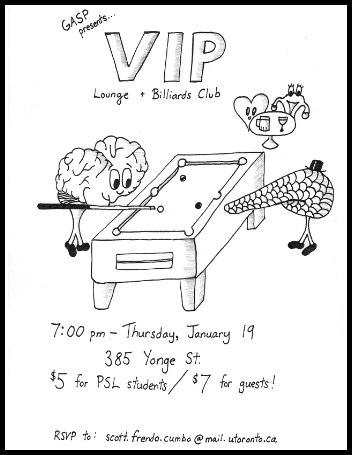 GASP
presents...
VIP
Lounge + Billiards Club
7:00 pm - Thursday, January 19
385 Yonge St.
$5 for PSL students / $7 for guests!
RSVP to: scott.frendo.cumbo@mail.utoronto.ca